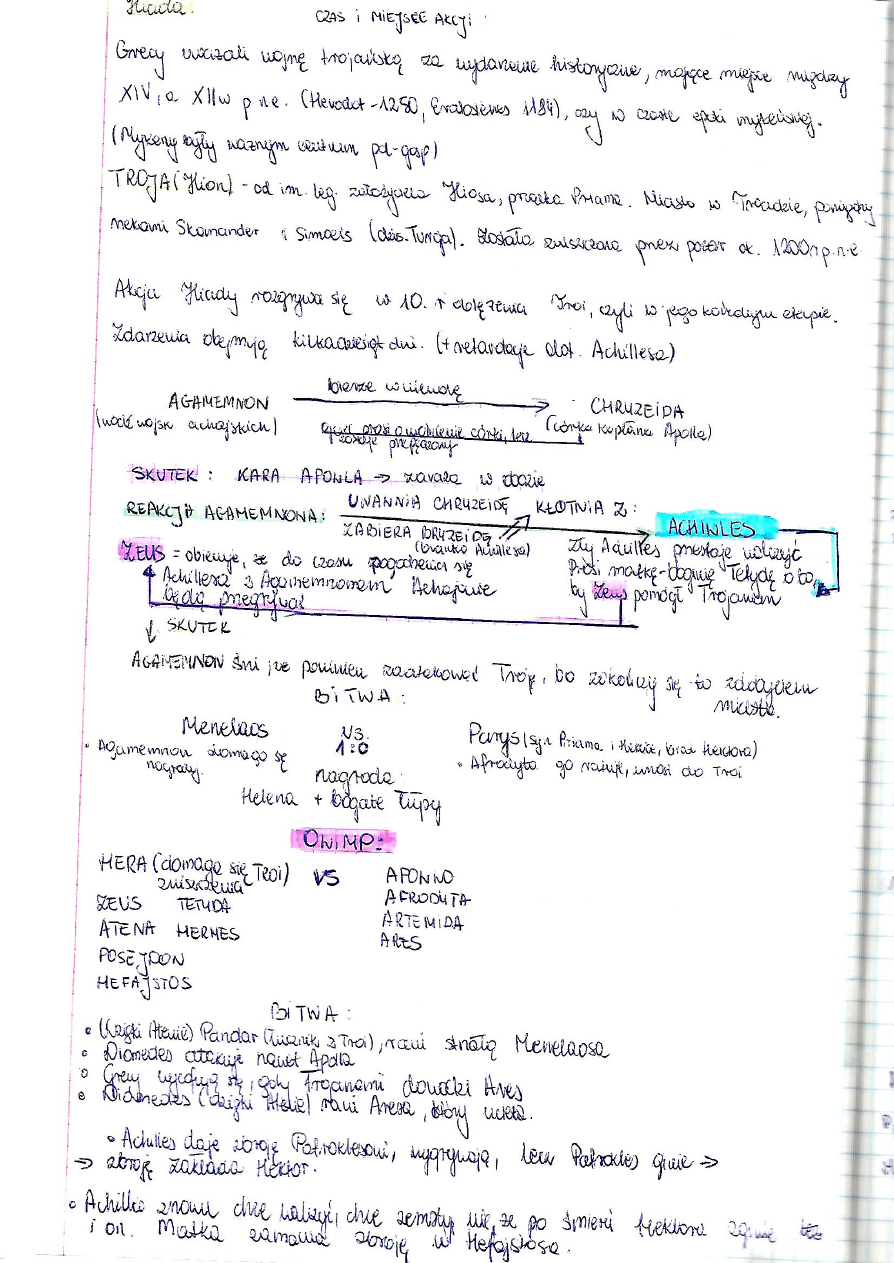 Iliada.
CZAS i MIEJSCE AKCJI:
Grecy uważali wojnę trojańską za wydarzenie historyczne, mające miejsce między
XIV, a XII w p.n.e. (Herodot - 1250, Eratostenes 1184), czy w czasie epoki mykeńskiej.
(Mykeny były ważnym centrum pol-gosp)
TROJA (Ilion) - od im. leg. założyciela Iliosa, przodka Priama. Miasto w Troadzie, pomiędzy
rzekami Skamander i Simoeis (dziś. Turcja). Została zniszczona przez pożar ok. 1200r p.n.e
Akcja Iliady rozgrywa się w 10. r oblężenia Troi, czyli w jego końcowym etapie.
Zdarzenia obejmują kilkadziesiąt dni. (+ retardacje dot. Achillesa)
AGAMEMNON bierze w niewolę CHRYZEIDA
(wódz wojsk achajskich) ojciec prosi o uwolnienie córki, lecz (córka kapłana Apolla)
zostaje przepędzony
SKUTEK: KARA APOLLA → zaraza w obozie
REAKCJA AGAMEMNONA: UWALNIA CHRYZEIDĘ KŁÓTNIA Z: ACHILLES
ZABIERA BRYZEIDĘ
(branka Achillesa)
ZEUS = obiecuje, że do czasu pogodzenia się
Achillesa z Agamemnonem Achajowie
będą przegrywać
Zły Achilles przestaje walczyć
Prosi matkę-boginię Tetydę o to,
by Zeus pomógł Trojanom
↓ SKUTEK
AGAMEMNON śni, że powinien zaatakować Troję, bo zakończy się to zdobyciem
miasta.
BITWA:
Menelaos vs. Parys (syn Priama i Hekabe, brat Hektora)
1:0
• Agamemnon domaga się
nagrody.
• Afrodyta go ratuje, unosi do Troi
nagroda:
Helena + bogate łupy
OLIMP:
HERA (domaga się Troi) VS APOLLO
zniszczenia
ZEUS TETYDA AFRODYTA
ATENA HERMES ARTEMIDA
POSEJDON ARES
HEFAJSTOS
BITWA:
• (Dzięki Atenie) Pandar (łucznik z Troi), rani strzałą Menelaosa
• Diomedes atakuje nawet Apolla
• Grecy wycofują się, gdy Trojanami dowodzi Ares
• Diomedes (dzięki Atenie) rani Aresa, który ucieka.
• Achilles daje zbroję Patroklesowi, wygrywają, lecz Patrokles ginie →
→ zbroję zakłada Hektor.
• Achilles znowu chce walczyć, chce zemsty, wie, że po śmierci Hektora zginie też
i on. Matka zamawia zbroję u Hefajstosa.